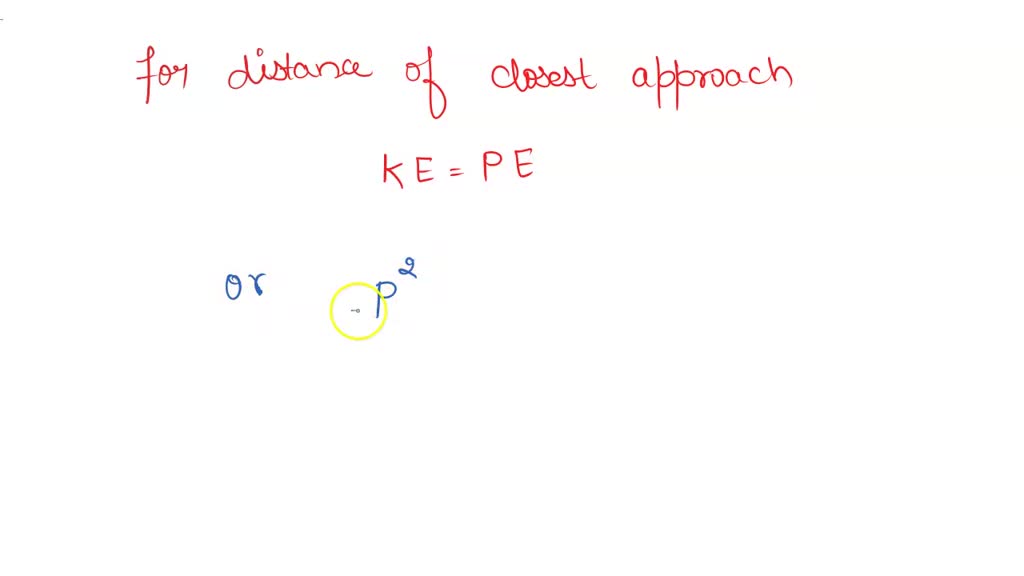 for distance of closest approach
KE = PE
or p²